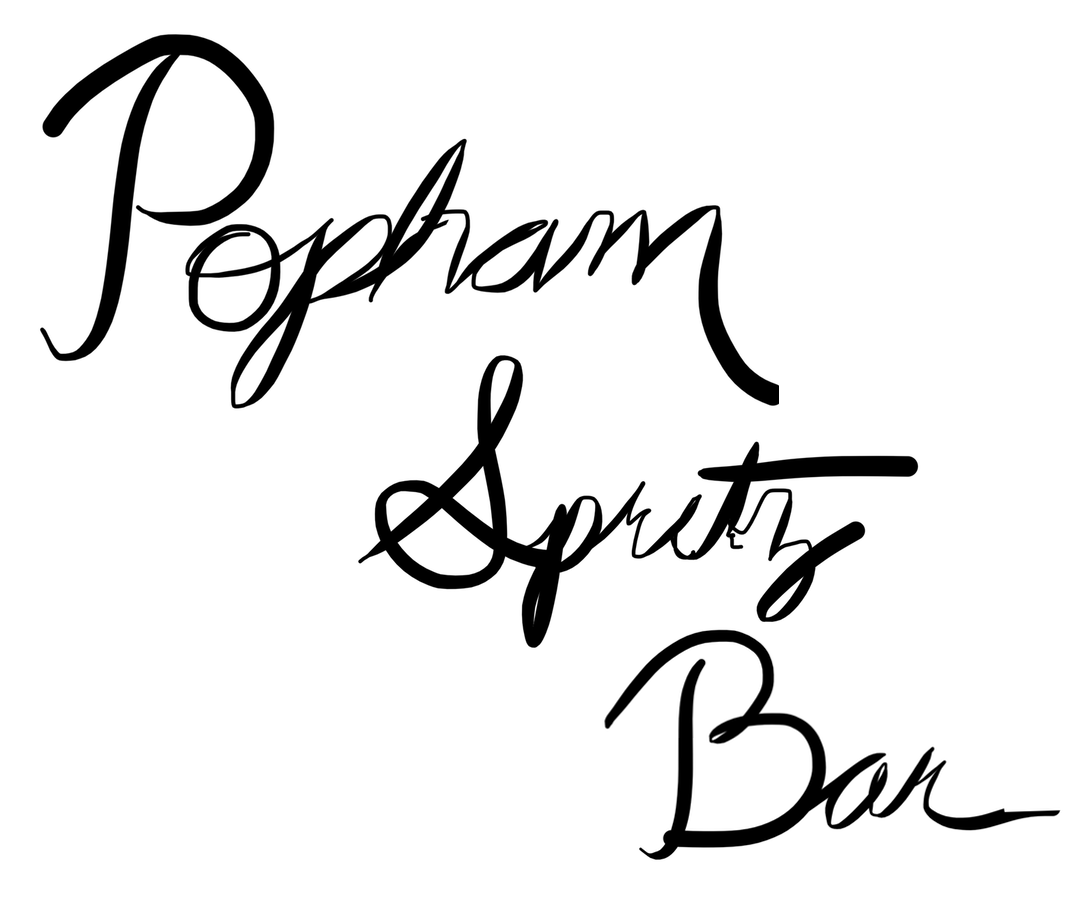 Popham
Spritz
Bar